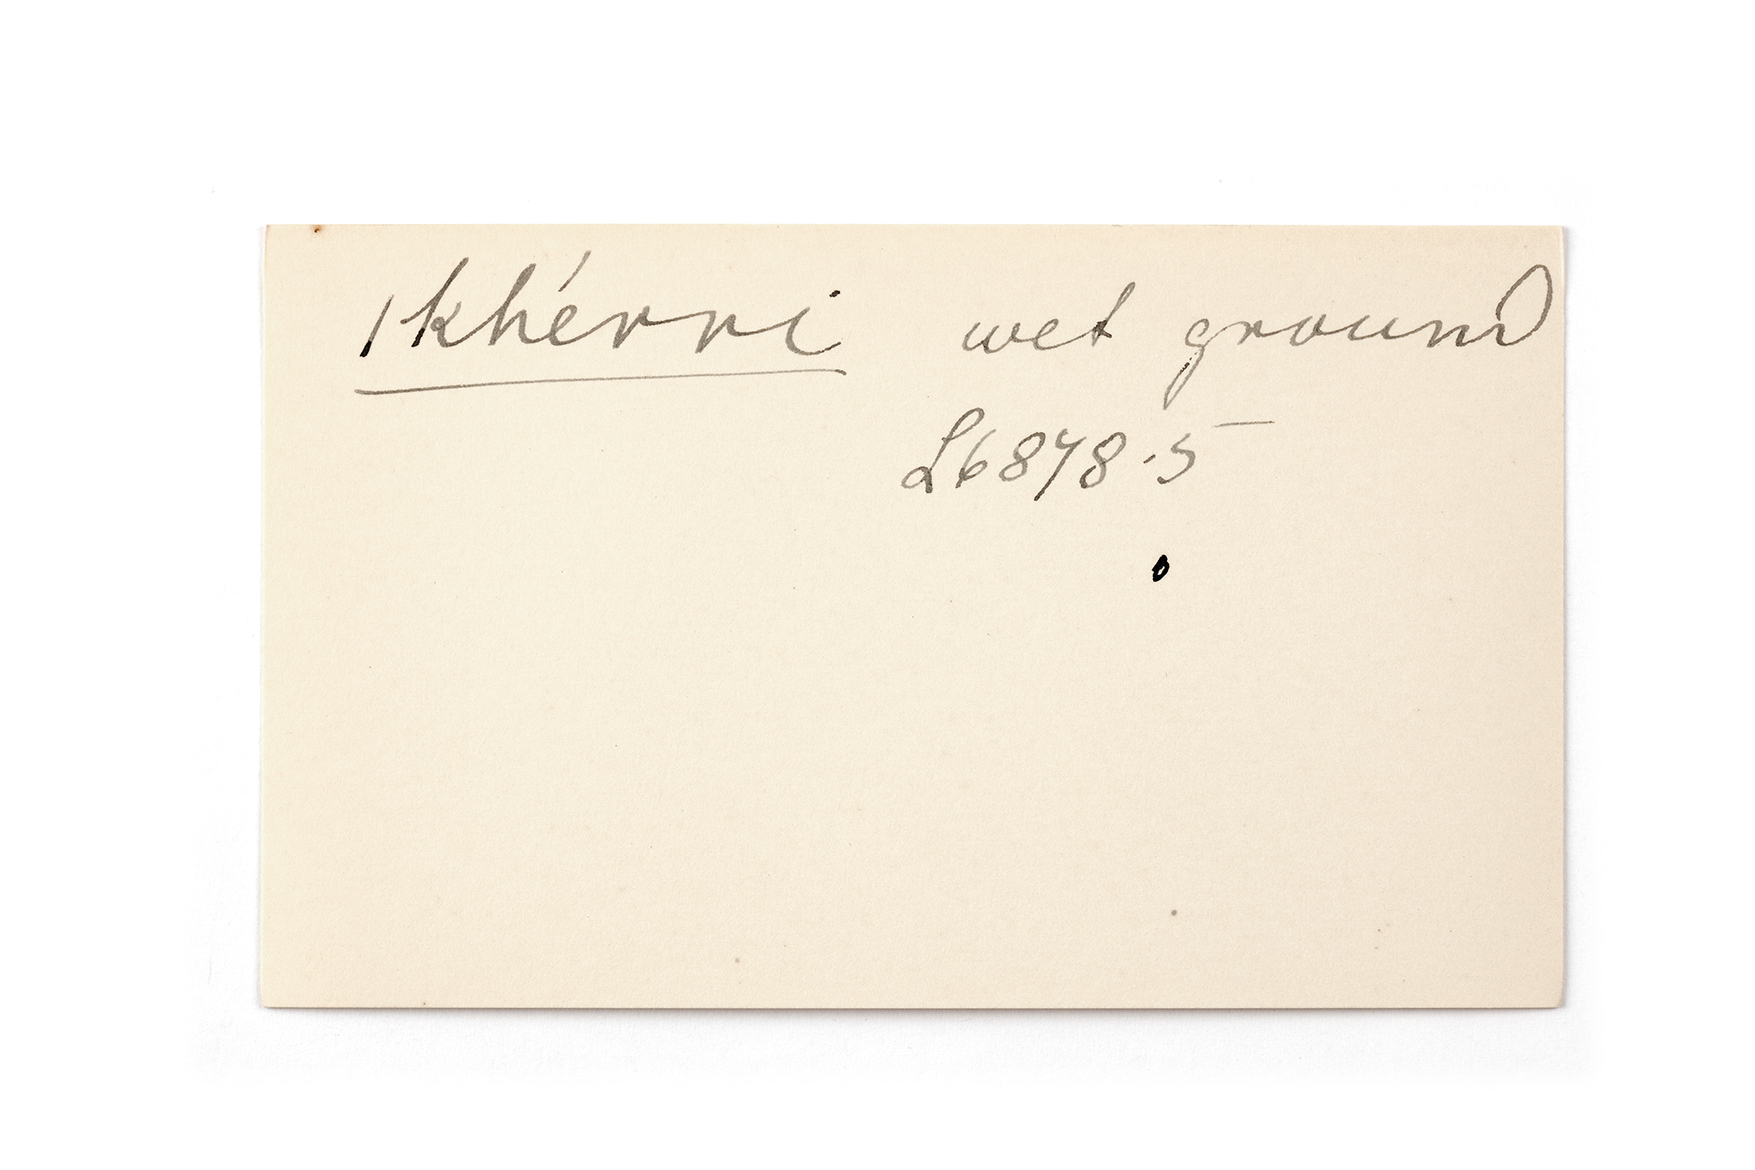 /khérri wet ground
L6878.5